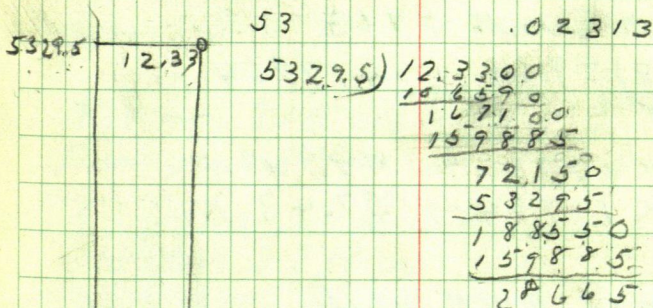 53 .02313
5329.5 12.33 5329.5) 12.3300
10 6590
1671 00
159885
72150
53295
188550
159885
28665